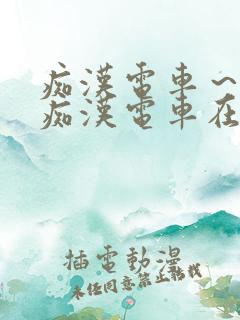 痴漢電車～
痴漢電車在
插電動漫
未任同意禁止轉載